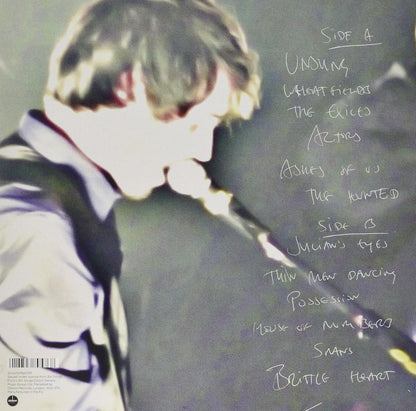 SIDE A
UNSUNG
WHEATFIELDS
THE EXILES
ACTORS
ASHES OF US
THE HUNTED
SIDE B
JULIAN'S EYES
THIN MEN DANCING
POSSESSION
HOUSE OF NUMBERS
SWANS
BRITTLE HEART